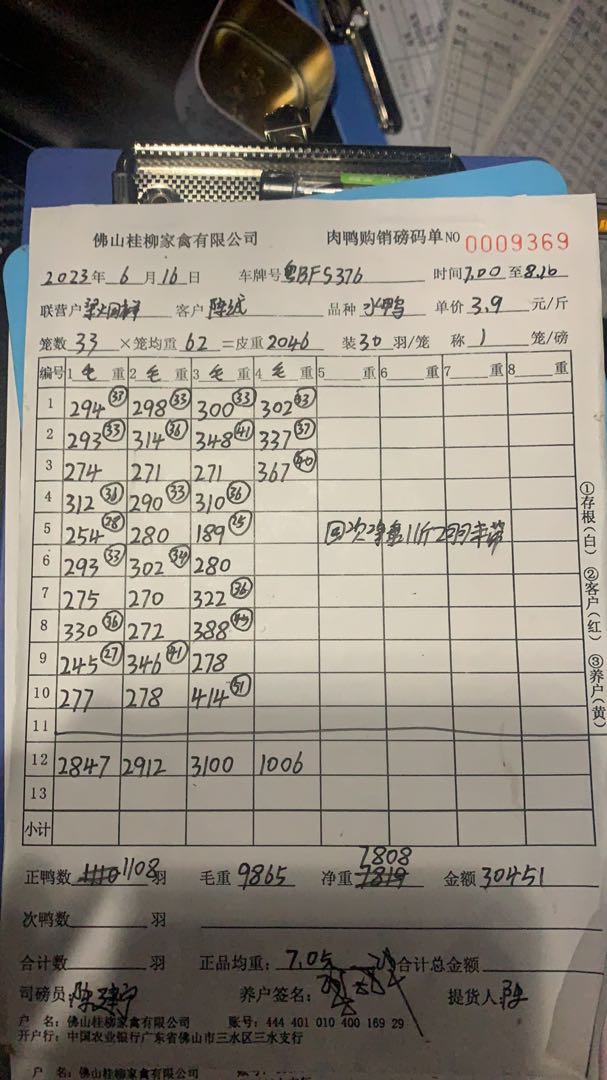 佛山桂柳家禽有限公司 肉鸭购销磅码单NO 0009369
2023年 6 月 16 日 车牌号 粤BFS376 时间 7.00 至 8.10
联营户 客户 品种 水鸭 单价 3.9 元/斤
笼数 33 ×笼均重 62 =皮重 2046 装 30 羽/笼 称 1 笼/磅
编号 1 毛 重 2 毛 重 3 毛 重 4 毛 重 5 重 6 重 7 重 8 重
1 294 33 298 33 300 33 302 33
2 293 33 314 36 348 41 337 37
3 274 271 271 367 40
4 312 36 290 33 310 36
5 254 28 280 189 25 回 次
6 293 33 302 34 280
7 275 270 322 36
8 330 36 272 388 45
9 245 27 346 41 278
10 277 278 414 51
11
12 2847 2912 3100 1006
13
小计
7808
正鸭数 1110 1108 羽 毛重 9865 净重 7819 金额 30451
次鸭数 羽
合计数 羽 正品均重: 7.05 合计总金额
司磅员: 养户签名: 提货人:
户 名: 佛山桂柳家禽有限公司 账号: 444 401 010 400 169 29
开户行: 中国农业银行广东省佛山市三水区三水支行
户 名: 佛山桂柳家禽有限公司
①存根(白) ②客户(红) ③养户(黄)